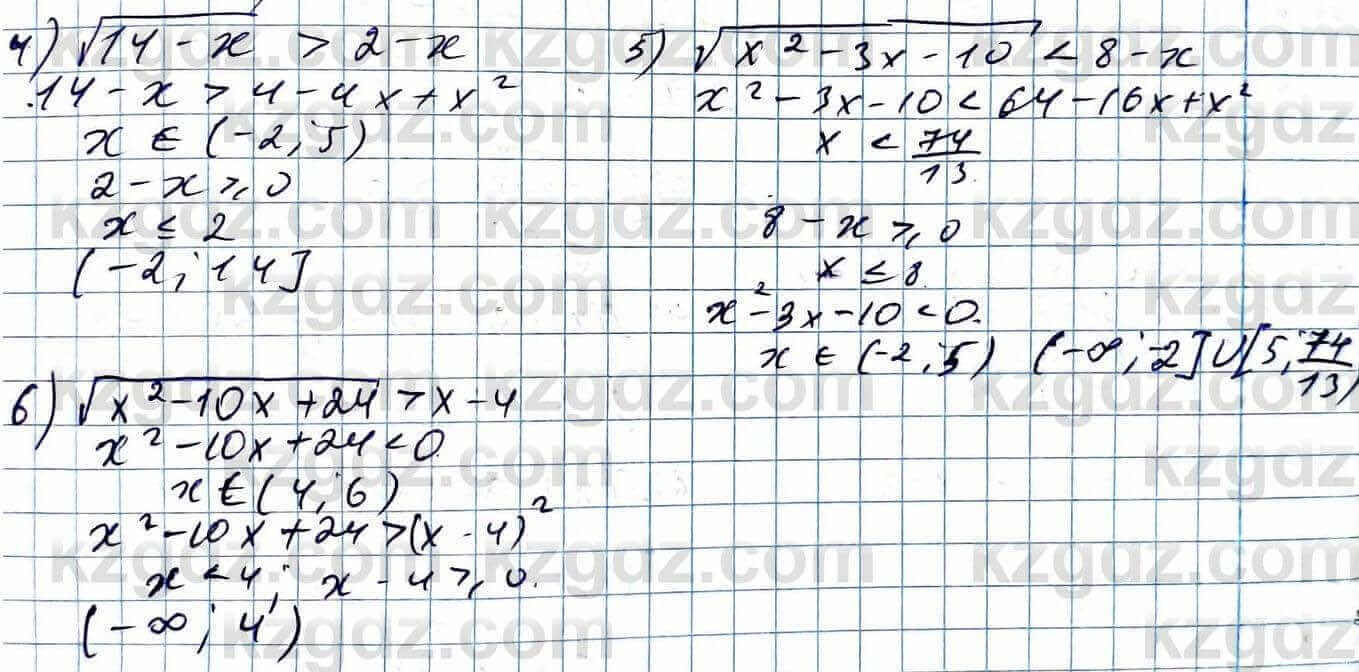 4) √14 - x > 2 - x
14 - x > 4 - 4x + x²
x ∈ (-2; 5)
2 - x ⩾ 0
x ≤ 2
(-2; 14]
5) √x² - 3x - 10 < 8 - x
x² - 3x - 10 < 64 - 16x + x²
x < 74/13
8 - x ⩾ 0
x ≤ 8
x² - 3x - 10 < 0.
x ∈ (-2; 5) (-∞; -2] U [5; 74/13)
6) √x² - 10x + 24 > x - 4
x² - 10x + 24 < 0
x ∈ (4; 6)
x² - 10x + 24 > (x - 4)²
x < 4; x - 4 ⩾ 0.
(-∞; 4)
kzgdz.com